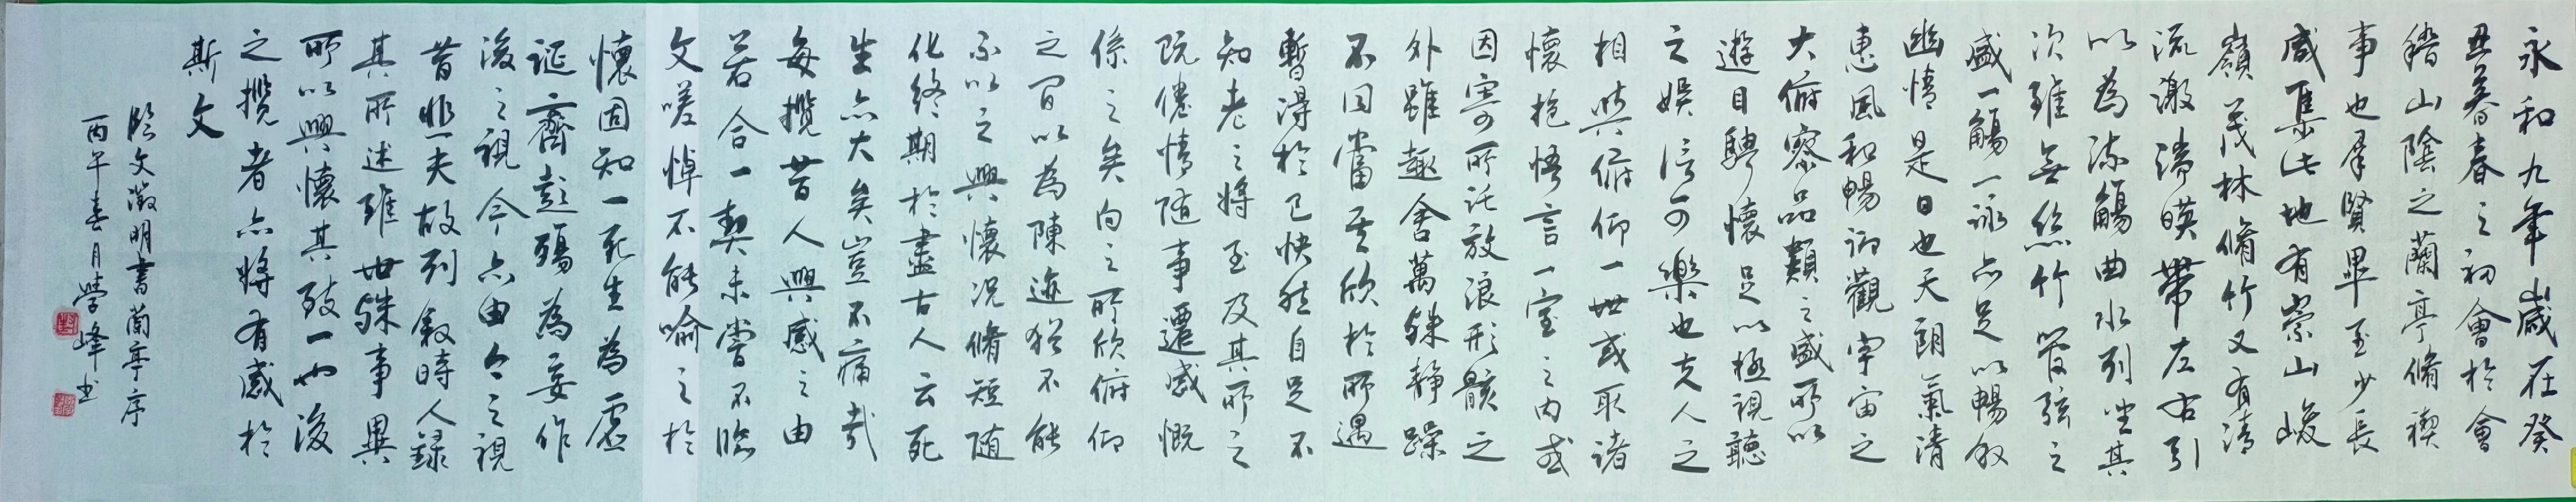 永和九年歲在癸
丑暮春之初會於會
稽山陰之蘭亭脩禊
事也羣賢畢至少長
咸集此地有崇山峻
嶺茂林脩竹又有清
流激湍暎帶左右引
以為流觴曲水列坐其
次雖無絲竹管弦之
盛一觴一詠亦足以暢叙
幽情是日也天朗氣清
惠風和暢仰觀宇宙之
大俯察品類之盛所以
遊目騁懷足以極視聽
之娛信可樂也夫人之
相與俯仰一世或取諸
懷抱悟言一室之內或
因寄所託放浪形骸之
外雖趣舍萬殊靜躁
不同當其欣於所遇
暫得於己快然自足不
知老之將至及其所之
既惓情隨事遷感慨
係之矣向之所欣俯仰
之間以為陳迹猶不能
不以之興懷況脩短隨
化終期於盡古人云死
生亦大矣豈不痛哉
每攬昔人興感之由
若合一契未嘗不臨
文嗟悼不能喻之於
懷固知一死生為虛
誕齊彭殤為妄作
後之視今亦由今之視
昔悲夫故列叙時人錄
其所述雖世殊事異
所以興懷其致一也後
之攬者亦將有感於
斯文
臨文徵明書蘭亭序
丙午春月學峰书